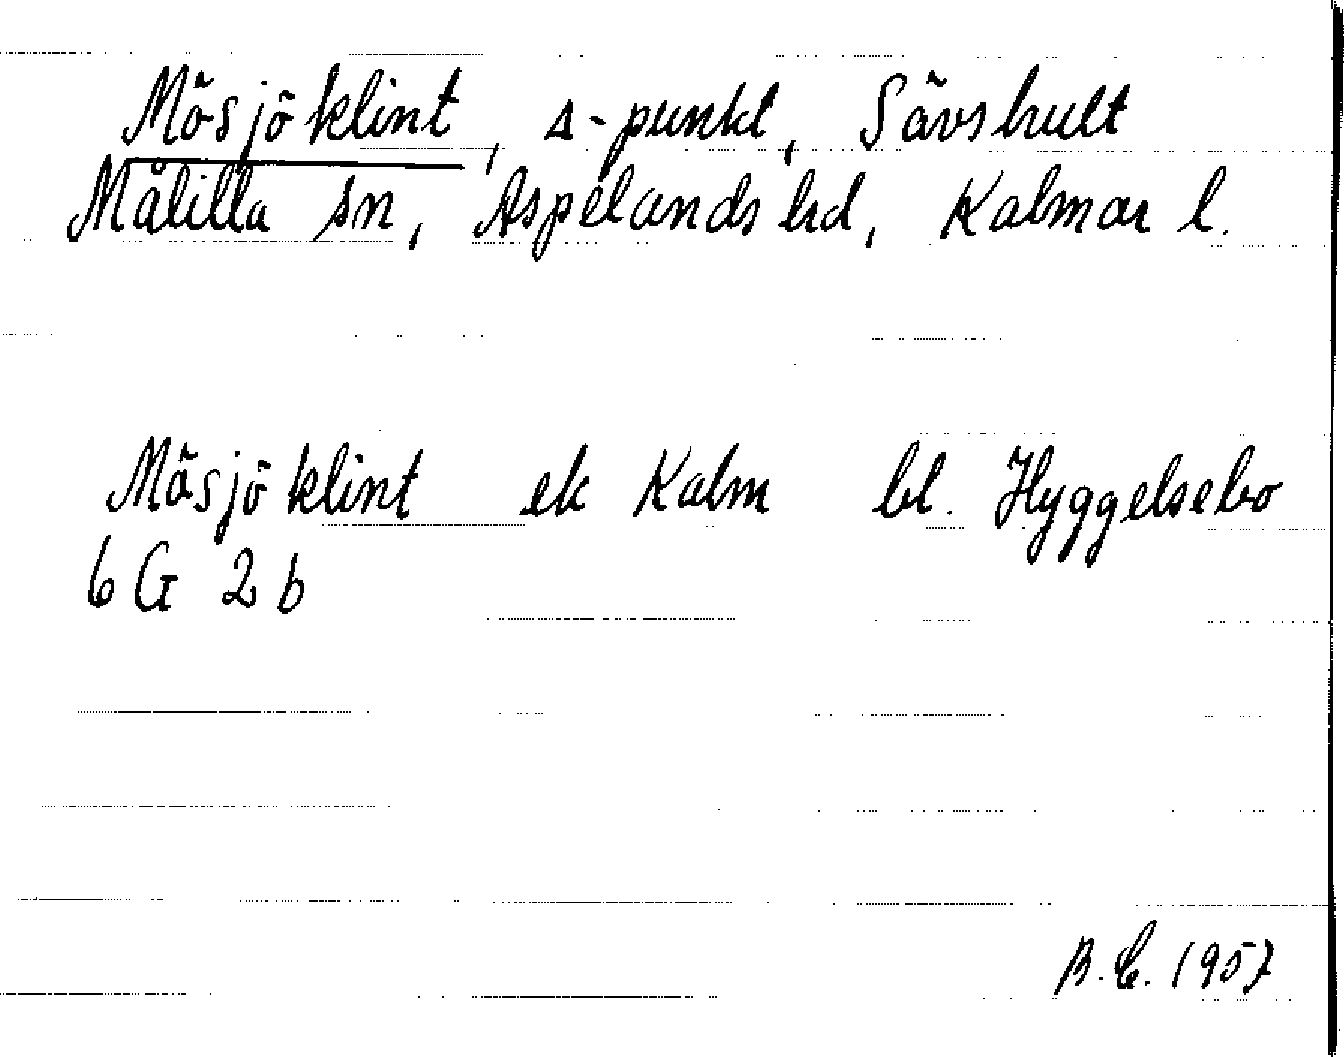 Mösjöklint, Δ-punkt, Sävshult
Målilla sn, Aspelands hd, Kalmar l.
Mösjöklint ek Kalm bl. Hyggelsebo
6G 2b
B.E. 1957